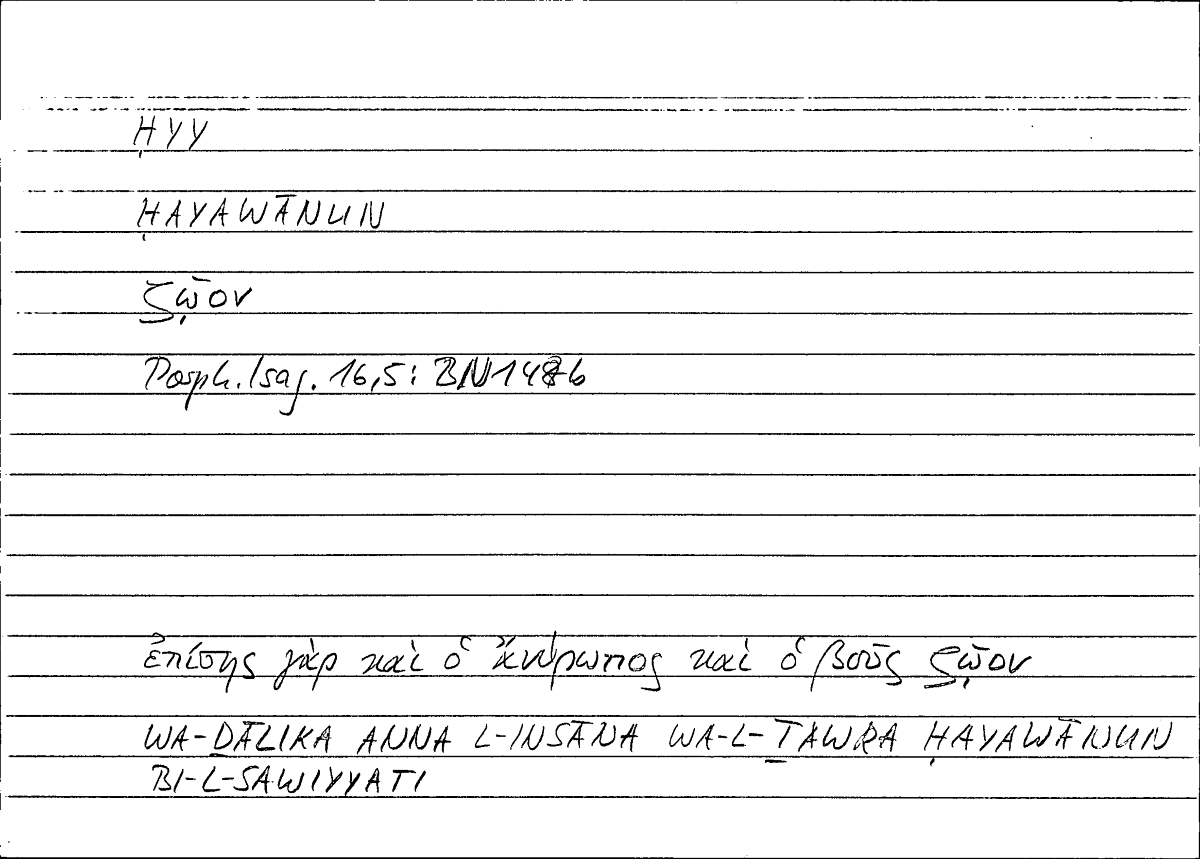 ḤYY
ḤAYAWĀNUN
ζῷον
Porph. Isag. 16,5: BN 148b
ἐπίσης γὰρ καὶ ὁ ἄνθρωπος καὶ ὁ βοῦς ζῷον
WA-ḎĀLIKA ANNA L-INSĀNA WA-L-ṮAWRA ḤAYAWĀNUN
BI-L-SAWIYYATI